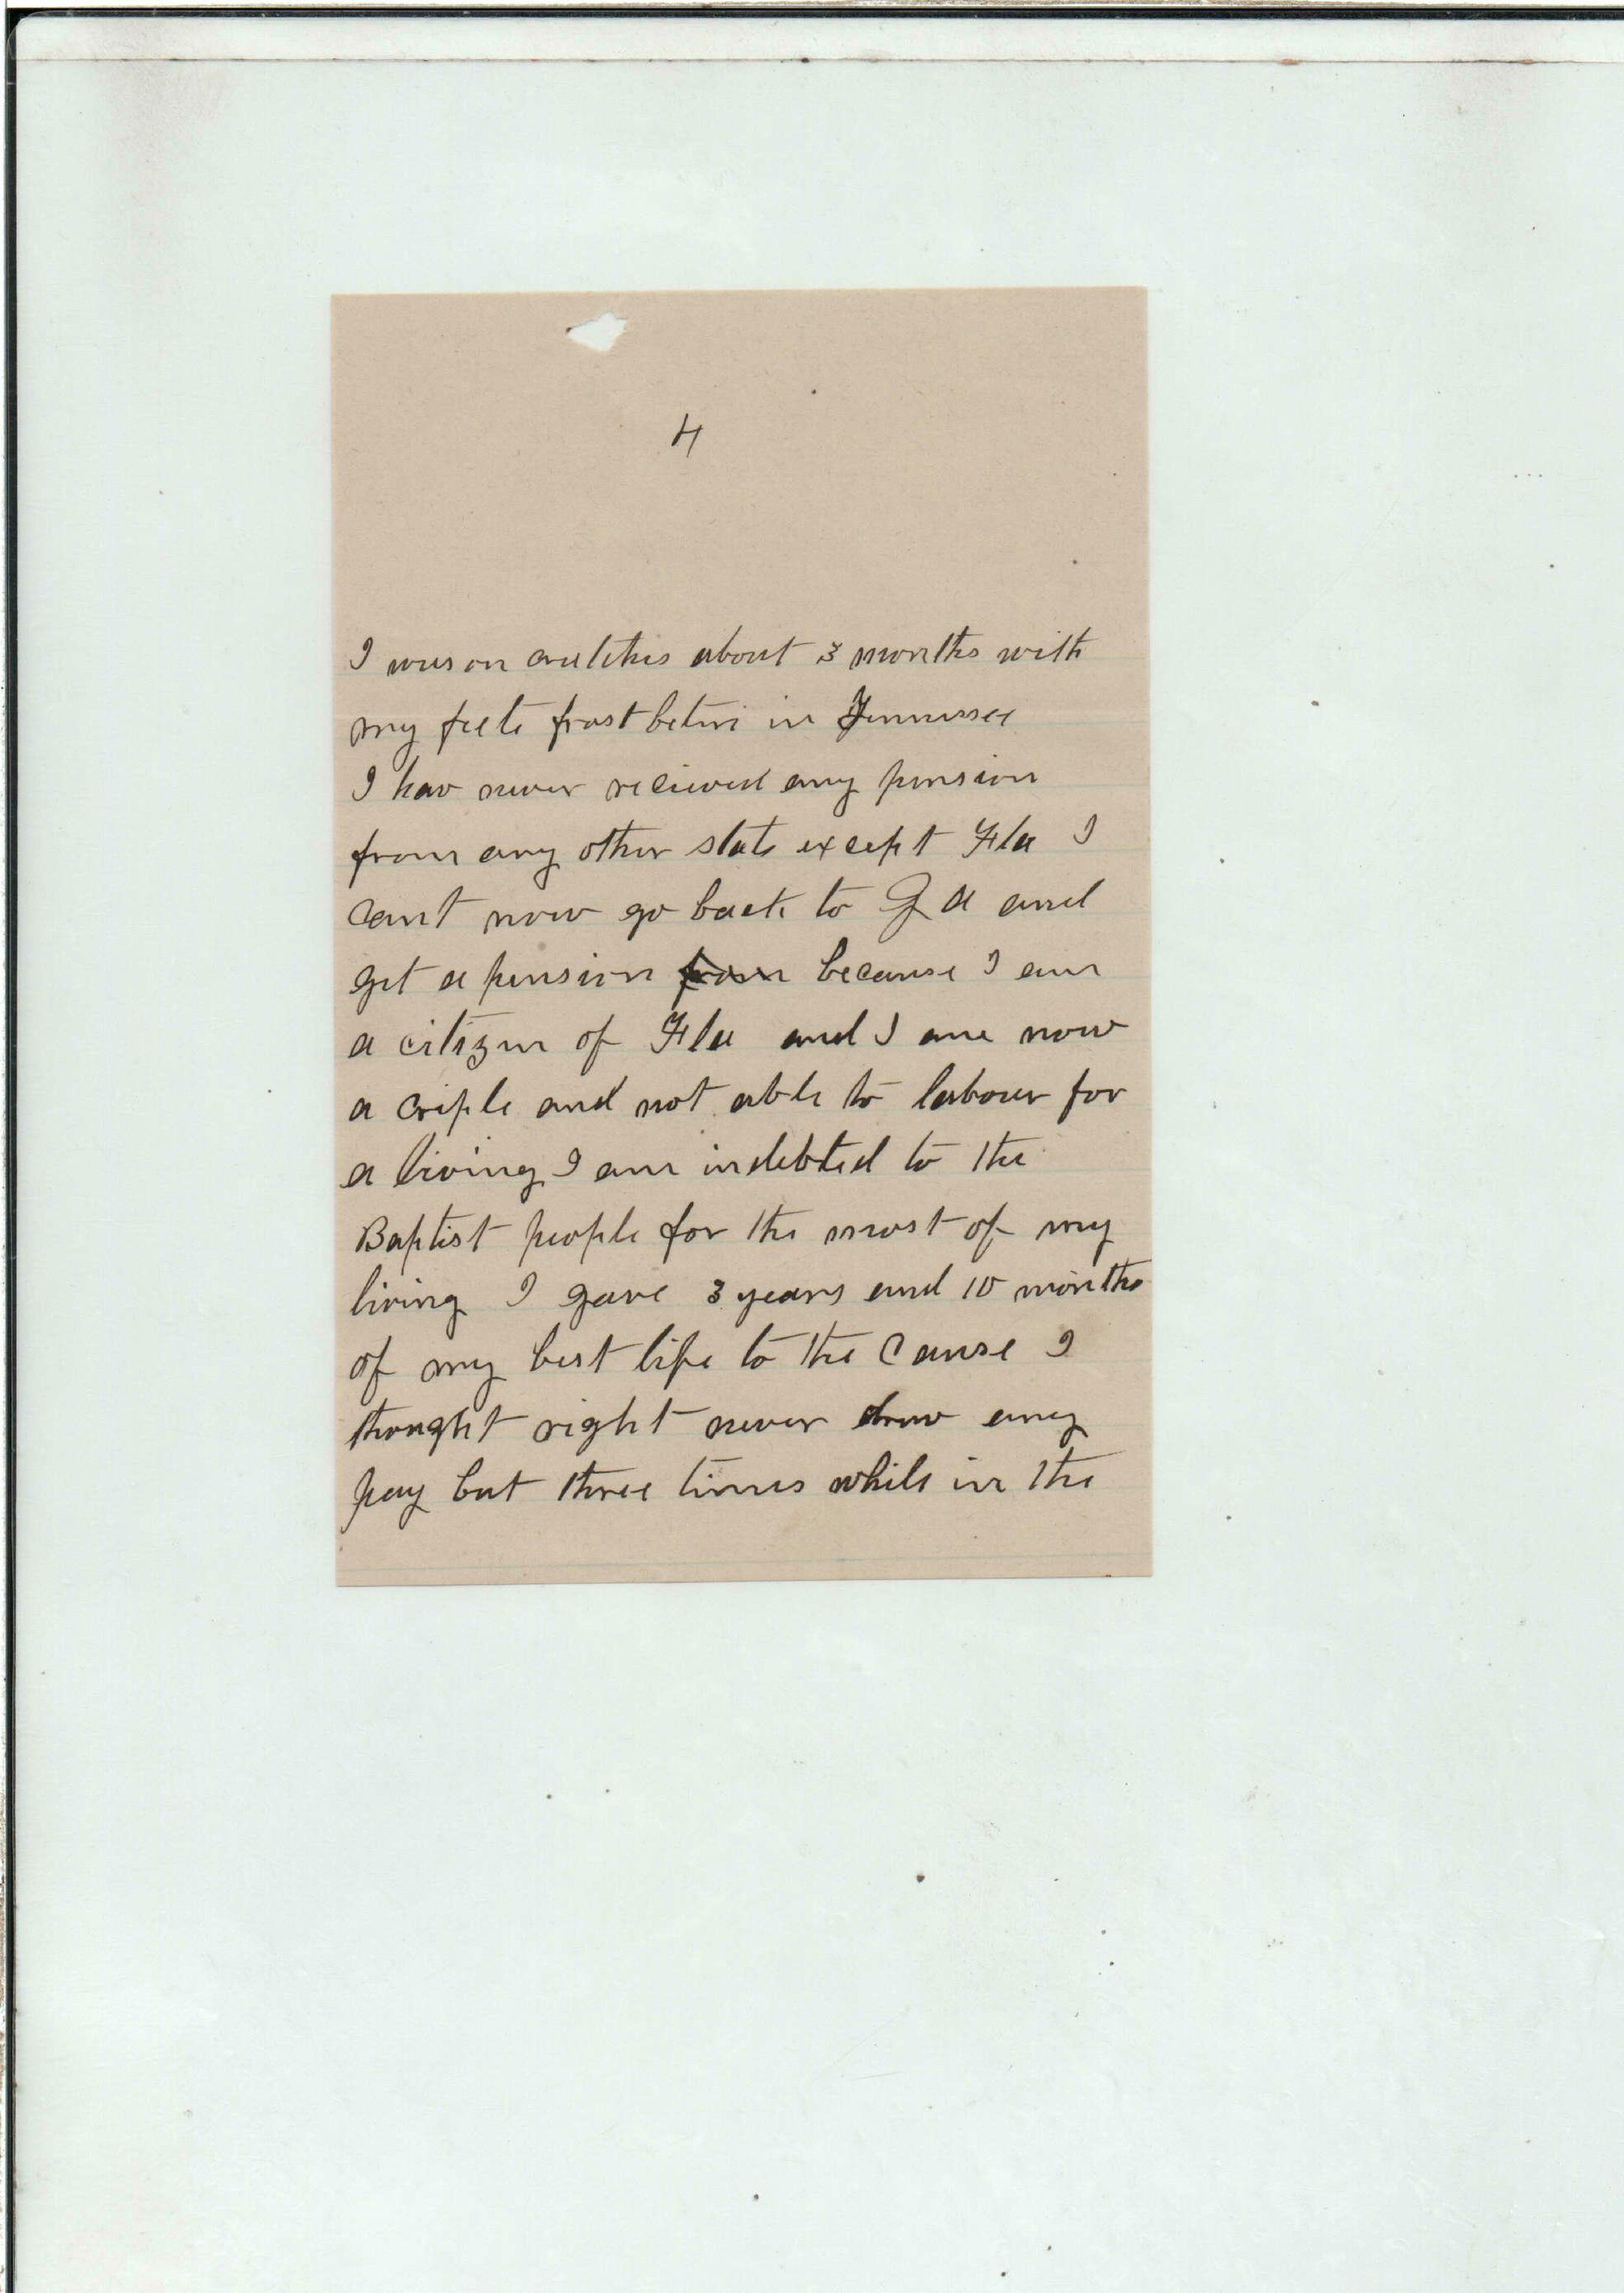 4
I was on crutches about 3 months with
my feete frost betin in Tennessee
I hav never recieved any pension
from any other state except Fla I
Cant now go back to Ga and
get a pension from because I am
a citizen of Fla and I am now
a criple and not able to labour for
a living I am indebted to the
Baptist people for the most of my
living I gave 3 years and 10 months
of my best life to the Cause I
thought right never draw any
pay but three times while in the